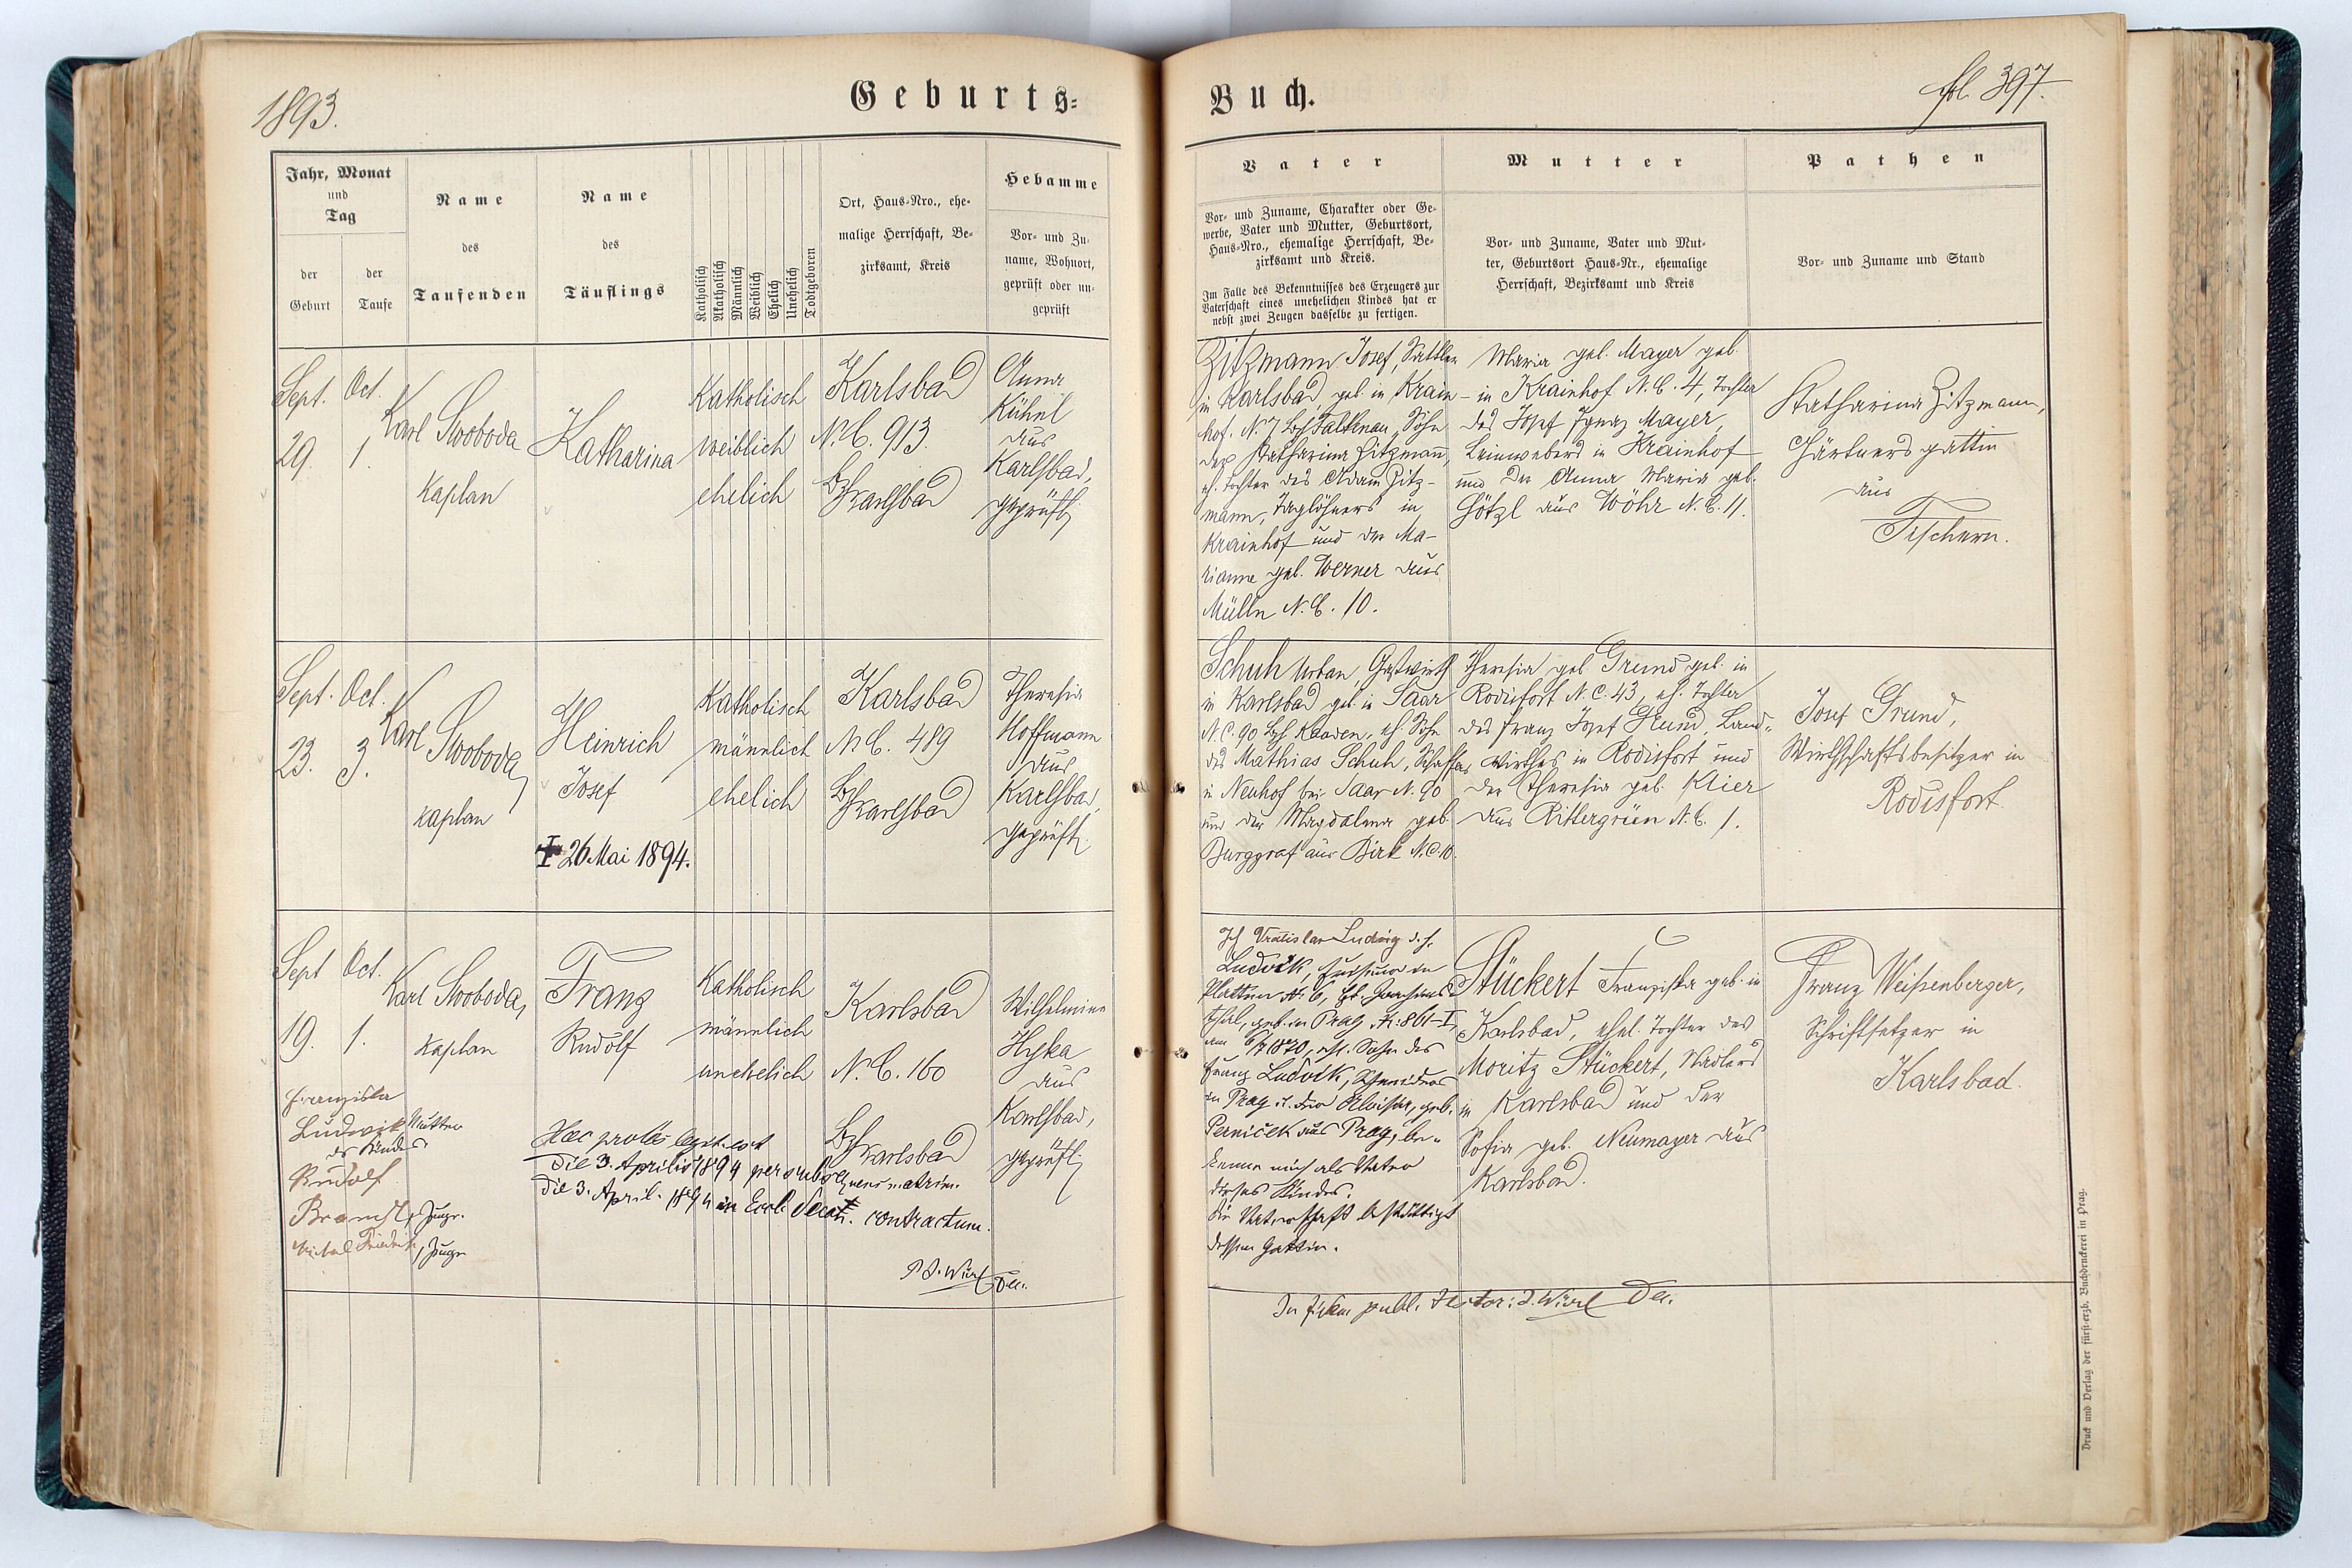 1893.
Geburts-
Jahr, Monat
und
Tag
der
Geburt
der
Taufe
Name
des
Taufenden
Name
des
Täuflings
Katholisch
Akatholisch
Männlich
Weiblich
Ehelich
Unehelich
Todtgeboren
Ort, Haus-Nro., ehe-
malige Herrschaft, Be-
zirksamt, Kreis
Hebamme
Vor- und Zu-
name, Wohnort,
geprüft oder un-
geprüft
Sept.
29.
Oct.
1.
Karl Swoboda
Kaplan
Katharina
Katholisch
weiblich
ehelich
Karlsbad
N.C. 913.
Bz Karlsbad
Anna
Kühnl
aus
Karlsbad,
geprüft
Sept.
23.
Oct.
3.
Karl Swoboda,
Kaplan
Heinrich
Josef
26. Mai 1894.
Katholisch
männlich
ehelich
Karlsbad
N.C. 489
Bz Karlsbad
Theresia
Hoffmann
aus
Karlsbad,
geprüft
Sept
19.
Oct.
1.
Karl Swoboda,
Kaplan
Franz
Rudolf
Katholisch
männlich
unehelich
Karlsbad
N.C. 160
Bz Karlsbad
Wilhelmine
Hyka
aus
Karlsbad,
geprüft
Franziska
Ludwik Mutter
des Kindes
Rudolf
Brandl, Zeuge.
Friedrich, Zeuge
Haec proles legit. est
die 3. Aprilis 1894 per subsequens matrim.
die 3. April. 1894 in Eccl. Decan. contractum.
P. J. Würl Dec.
Buch.
fol. 397.
Vater
Vor- und Zuname, Charakter oder Ge-
werbe, Vater und Mutter, Geburtsort,
Haus-Nro., ehemalige Herrschaft, Be-
zirksamt und Kreis.
Im Falle des Bekenntnisses des Erzeugers zur
Vaterschaft eines unehelichen Kindes hat er
nebst zwei Zeugen dasselbe zu fertigen.
Mutter
Vor- und Zuname, Vater und Mut-
ter, Geburtsort Haus-Nr., ehemalige
Herrschaft, Bezirksamt und Kreis
Pathen
Vor- und Zuname und Stand
Zitzmann Josef, Sattler
in Karlsbad geb. in Krain-
hof. N. 7 Bz Falkenau, Sohn
der Katharina Zitzmann,
eh. Tochter des Adam Zitz-
mann, Taglöhners in
Krainhof und der Ma-
rianne geb. Werner aus
Mülln N.C. 10.
Maria geb. Mayer geb.
in Krainhof N.C. 4, Tochter
des Josef Ignaz Mayer,
Leinwebers in Krainhof
und der Anna Maria geb.
Götzl aus Wöhr N.C. 11.
Katharina Zitzmann,
Gärtnersgattin
aus
Fischern.
Schuh Urban, Gastwirth
in Karlsbad geb. in Saar
N.C. 90 Bz Kaaden, eh. Sohn
des Mathias Schuh, Schaffers
in Neuhof bei Saar N. 90
und der Magdalena geb.
Burggraf aus Dirk N.C. 10.
Theresia geb Grund geb. in
Rodisfort N.C. 43, eh. Tochter
des Franz Josef Grund, Land-
wirthes in Rodisfort und
der Theresia geb. Klier
aus Rittersgrün N.C. 1.
Josef Grund,
Wirthschaftsbesitzer in
Rodisfort.
Ich Vratislav Ludwig d. h.
Ludvík, in
Platten N. 6, Bz. Joachims-
thal, geb. in Prag N. 861-I,
am 6/7 1870, ehl. Sohn des
Franz Ludvík, Schneiders
in Prag u. der Aloisia, geb.
Perníček aus Prag, be-
kenne mich als Vater
dieses Kindes.
Die Vaterschaft bestättigt
dessen Gattin.
Stückert Franziska geb. in
Karlsbad, ehel. Tochter des
Moritz Stückert, Nadlers
in Karlsbad und der
Sofia geb. Neumayer aus
Karlsbad.
Franz Weißenberger,
Schriftsetzer in
Karlsbad.
In fidem publ. testor: J. Würl Dec.
Druck und Verlag der fürst-erzb. Buchdruckerei in Prag.